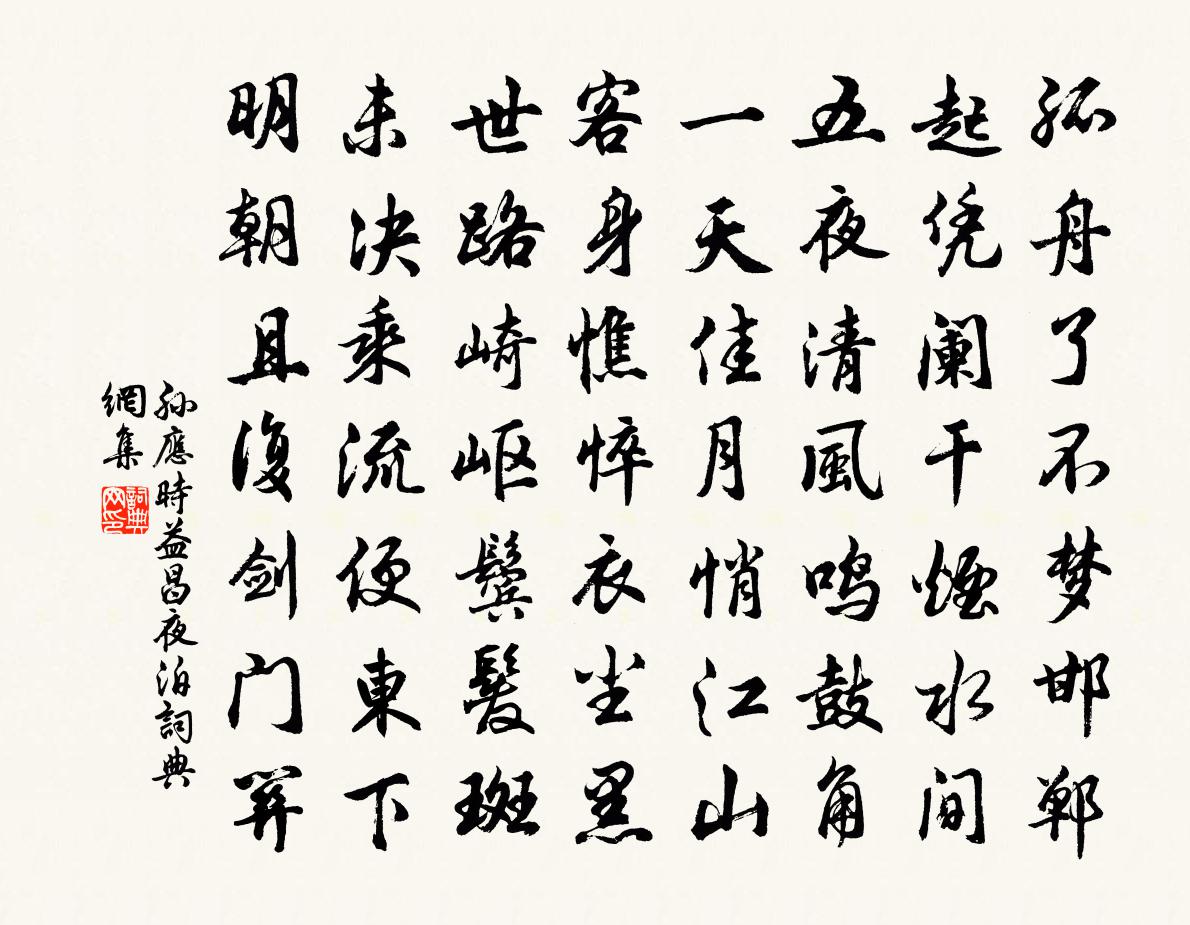 孤舟了不梦邯郸
起凭阑干烟水间
五夜清風鸣鼓角
一天佳月悄江山
客身憔悴衣尘黑
世路崎岖鬓髮斑
未决乘流便東下
明朝且復剑门关
孙應時益昌夜泊詞典
網集
詞典网印